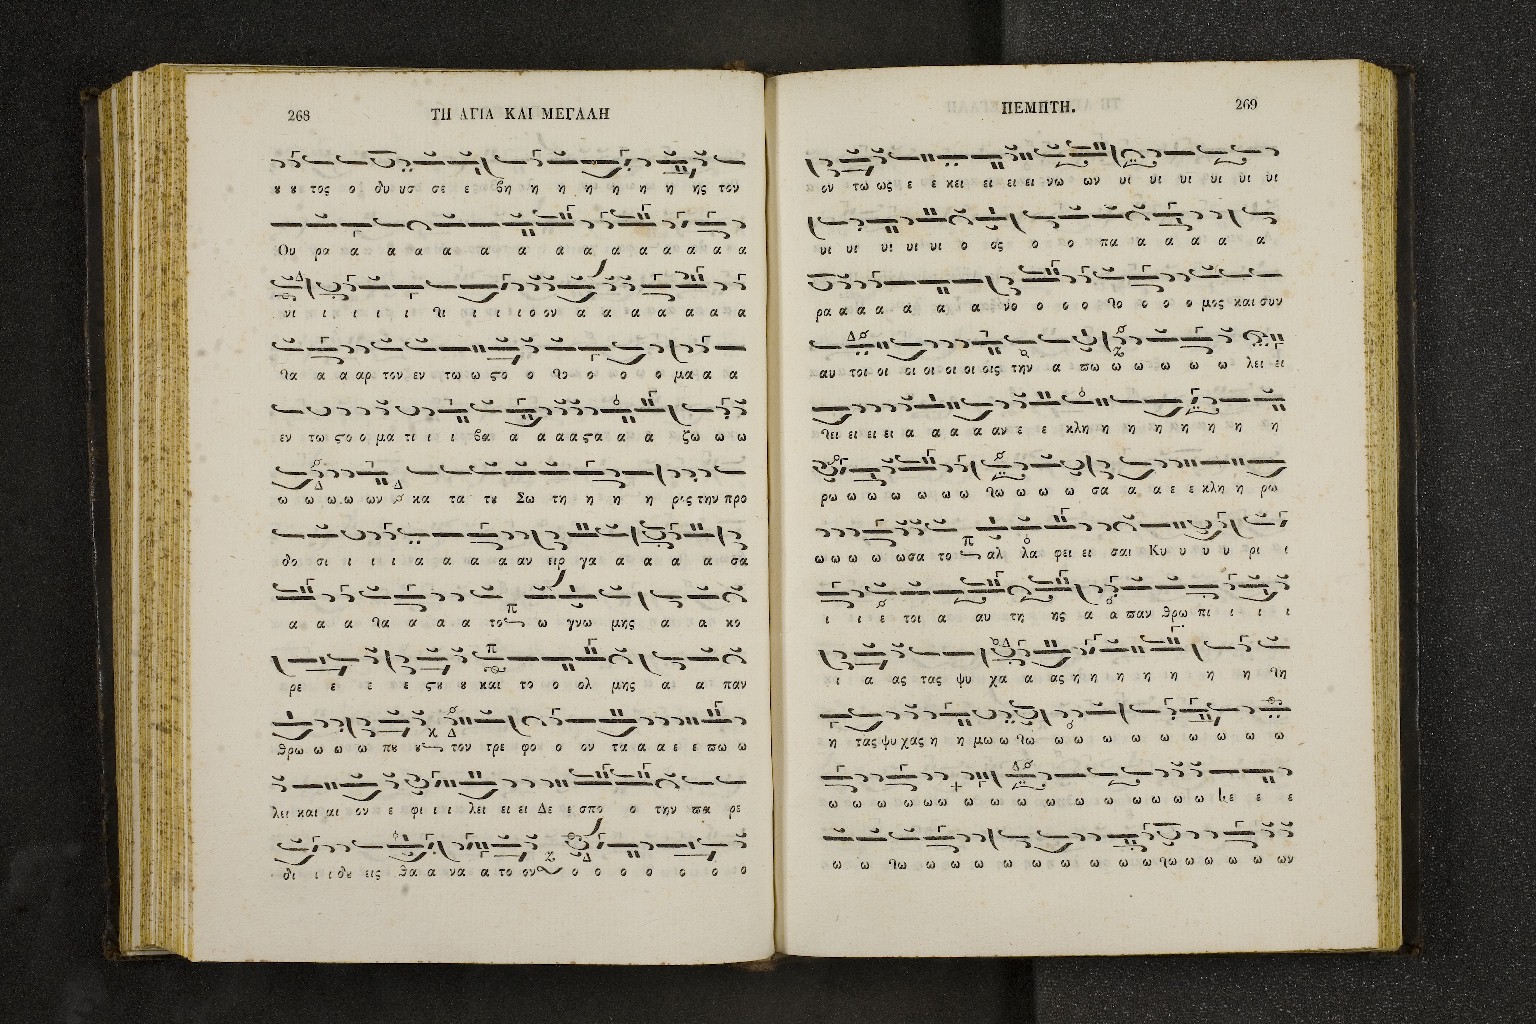 268
ΤΗ ΑΓΙΑ ΚΑΙ ΜΕΓΑΛΗ
ȣ ȣ τος ο δυ υσ σε ε βη η η η η η η η ης τον
Ου ρα α α α α α α α α α α α α α
νι ι ι ι ι ϡι ι ι ι ο ον α α α α α α α α
ϡα α α αρ τον εν τω ω ϛο ο ϡο ο ο ο μα α α
εν τω ϛο ο μα τι ι ι βα α α α α ϛα α α ζω ω ω
ω ω ω ω ων κα τα τȣ Σω τη η η η ρος την προ
δο σι ι ι ι α α α α αν ειρ γα α α α α σα
α α α ϡα α α α το ω γνω μης α α κο
ρε ε ε ε ε ϛȣ ȣ και το ο ολ μης α α παν
θρω ω ω ω πȣ ȣ τον τρε φο ο ον τα α α ε ε πω ω
λει και αι ον ε φι ι ι λει ει ει Δε ε σπο ο την πα ρε
δι ι ι δȣ εις θα α να α το ον ο ο ο ο ο ο ο
ΠΕΜΠΤΗ.
269
ον τω ως ε ε κει ει ει ει νω ων υι υι υι υι υι υι
υι υι υι υι υι ο ος ο ο πα α α α α α
ρα α α α α α α νο ο ο ο ϡο ο ο ο μος και συν
αυ τοι οι οι οι οι οι οις την α πω ω ω ω ω ω λει ει
ϡει ει ει ει α α α α αν ε ε κλη η η η η η η η η
ρω ω ω ω ω ω ω ϡω ω ω ω σα α α ε ε κλη η ρω
ω ω ω ω ωσα το αλ λα φει ει σαι Κυ υ υ υ ρι ι
ι ι ε τοι α αυ τη ης α α παν θρω πι ι ι ι
ι α ας τας ψυ χα α ας η η η η η η η η ϡη
η τας ψυ χας η η μω ω ϡω ω ω ω ω ω ω ω ω ω
ω ω ω ω ω ω ω ω ω ω ω ω ω ω ω ω ε ε ε
ω ω ϡω ω ω ω ω ω ω ω ω ω ϡω ω ω ω ω ων